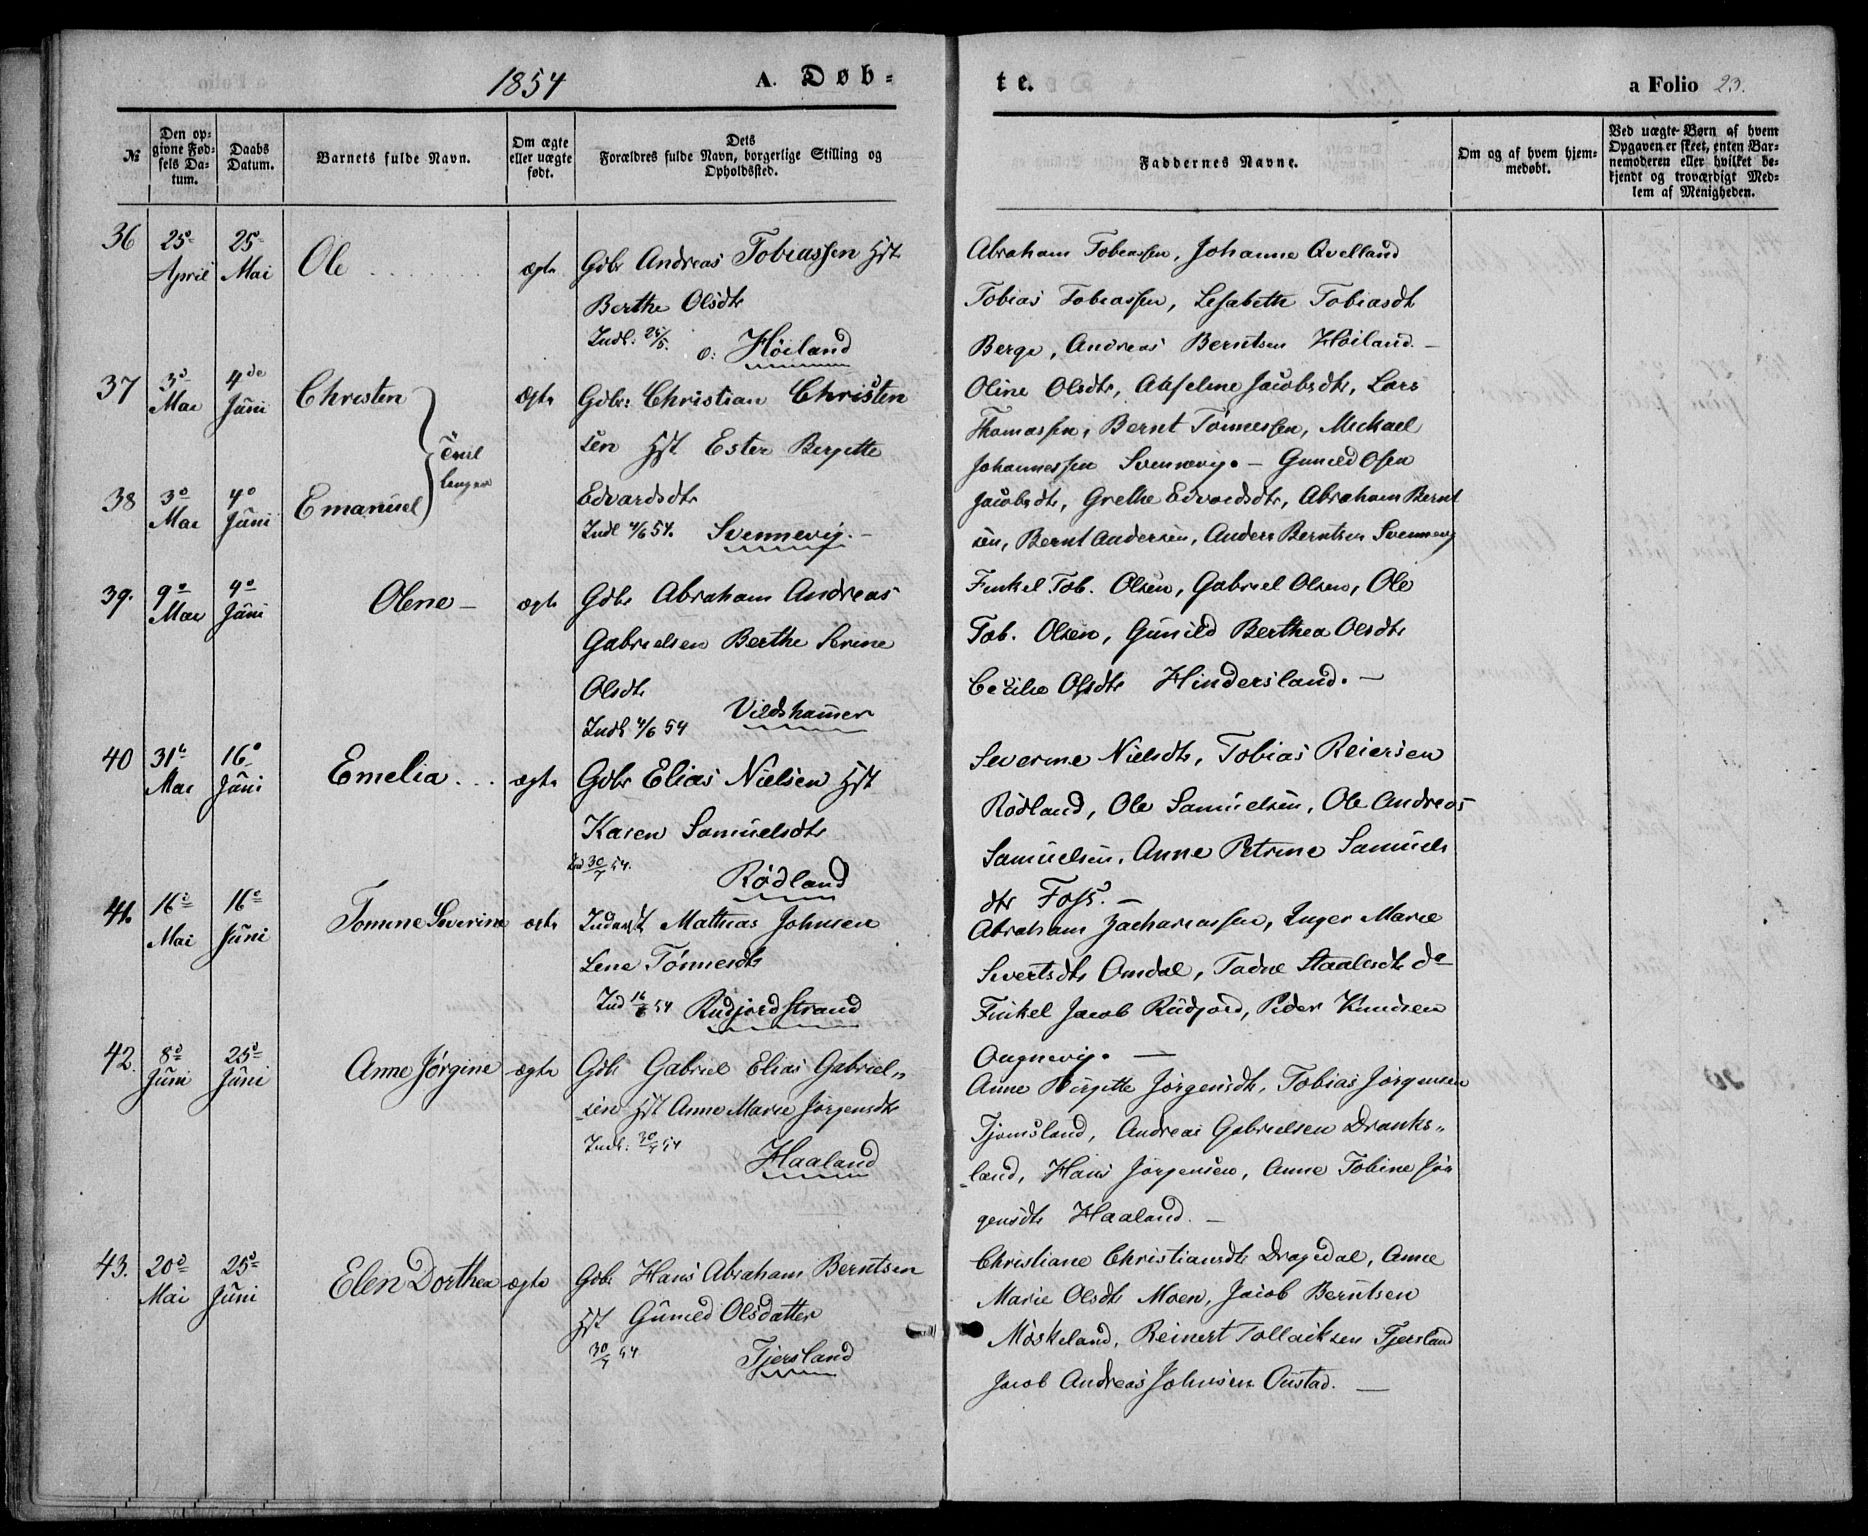 1854 A. Døb- te. a Folio 23.
№ Den opgivne Fødsels Datum. Daabs Datum. Barnets fulde Navn. Om ægte eller uægte født. Dets Forældres fulde Navn, borgerlige Stilling og Opholdssted. Faddernes Navne. Om og af hvem hjemmedøbt. Ved uægte Børn af hvem Opgaven er skeet, enten Barnemoderen eller hvilket bekjendt og troværdigt Medlem af Menigheden.
36 25de April 25 Mai Ole ægte Gdbr Andreas Tobiassen Hst
Berthe Olsdtr
Indl. 25/5. o: Høiland
Abraham Tobiassen, Johanne Qvelland
Tobias Tobiassen, Lisabethe Tobiasdt
Berge, Andreas Berntsen Høiland. –
37 3d Mai 4de Juni Christen ægte Gdbr: Christian Christen
sen Hst Ester Bergitte
Tvil
linger
38 3d Mai 4d Juni Emanuel Edvardsdtr
Indl 4/6 54. Svennevig. –
Oline Olsdtr, Axseline Jacobsdtr, Lars
Thomassen, Bernt Tønnessen, Mickael
Johannessen Svennevig. – Gunild Osen
Jacobsdtr, Grethe Edvardsdtr, Abraham Bernt
sen, Bernt Andersen, Anders Berntsen Svennevig
39. 9d Mai 4d Juni Olene – ægte Gdbr Abraham Andreas
Gabrielsen Berthe Serine
Olsdtr
Indl 4/6 54 Vildshammer
Enkel Tob. Olsen, Gabriel Olsen, Ole
Tob. Olsen, Gunild Berthea Olsdtr
Cecilie Olsdtr Hindersland. –
40 31te Mai 16d Juni Emelia . . . ægte Gdbr Elias Nielsen Hst
Karen Samuelsdtr
Ind 30/7 54. Rødland
Severine Nielsdtr, Tobias Reiersen
Rødland, Ole Samuelsen, Ole Andreas
Samuelsen, Anne Petrine Samuels
dtr Foss. –
41. 16de Mai 16de Juni Tomine Severine ægte Inderst Mathias Johnsen
Lene Tønnesdtr
Ind 16/6 54 Rudjord Strand
Abraham Zachariassen, Inger Marie
Sivertsdtr Omdal, Tadne Staalesdtr do
Enkel Jacob Rudjord, Peder Knudsen
Ougnevig. –
42. 8d Juni 25d Juni Anne Jørgine ægte Gdbr Gabriel Elias Gabriel„
sen Hst Anne Marie Jørgensdtr
Indl. 30/7 54 Haaland
Anne Birgitte Jørgensdtr, Tobias Jørgensen
Tjomsland, Andreas Gabrielsen Dranks„
land, Hans Jørgensen, Anne Tobine Jør
gensdtr Haaland. –
43. 20d Mai 25d Juni Elen Dorthea ægte Gdbr Hans Abraham Berntsen
Hst Gunild Olsdatter
30/7 54. Tjersland
Christiane Christiansdtr Dragedal, Anne
Marie Olsdtr Moen, Jacob Berntsen
Møskeland, Reinert Tollaksen Tjersland
Jacob Andreas Johnsen Oustad. –